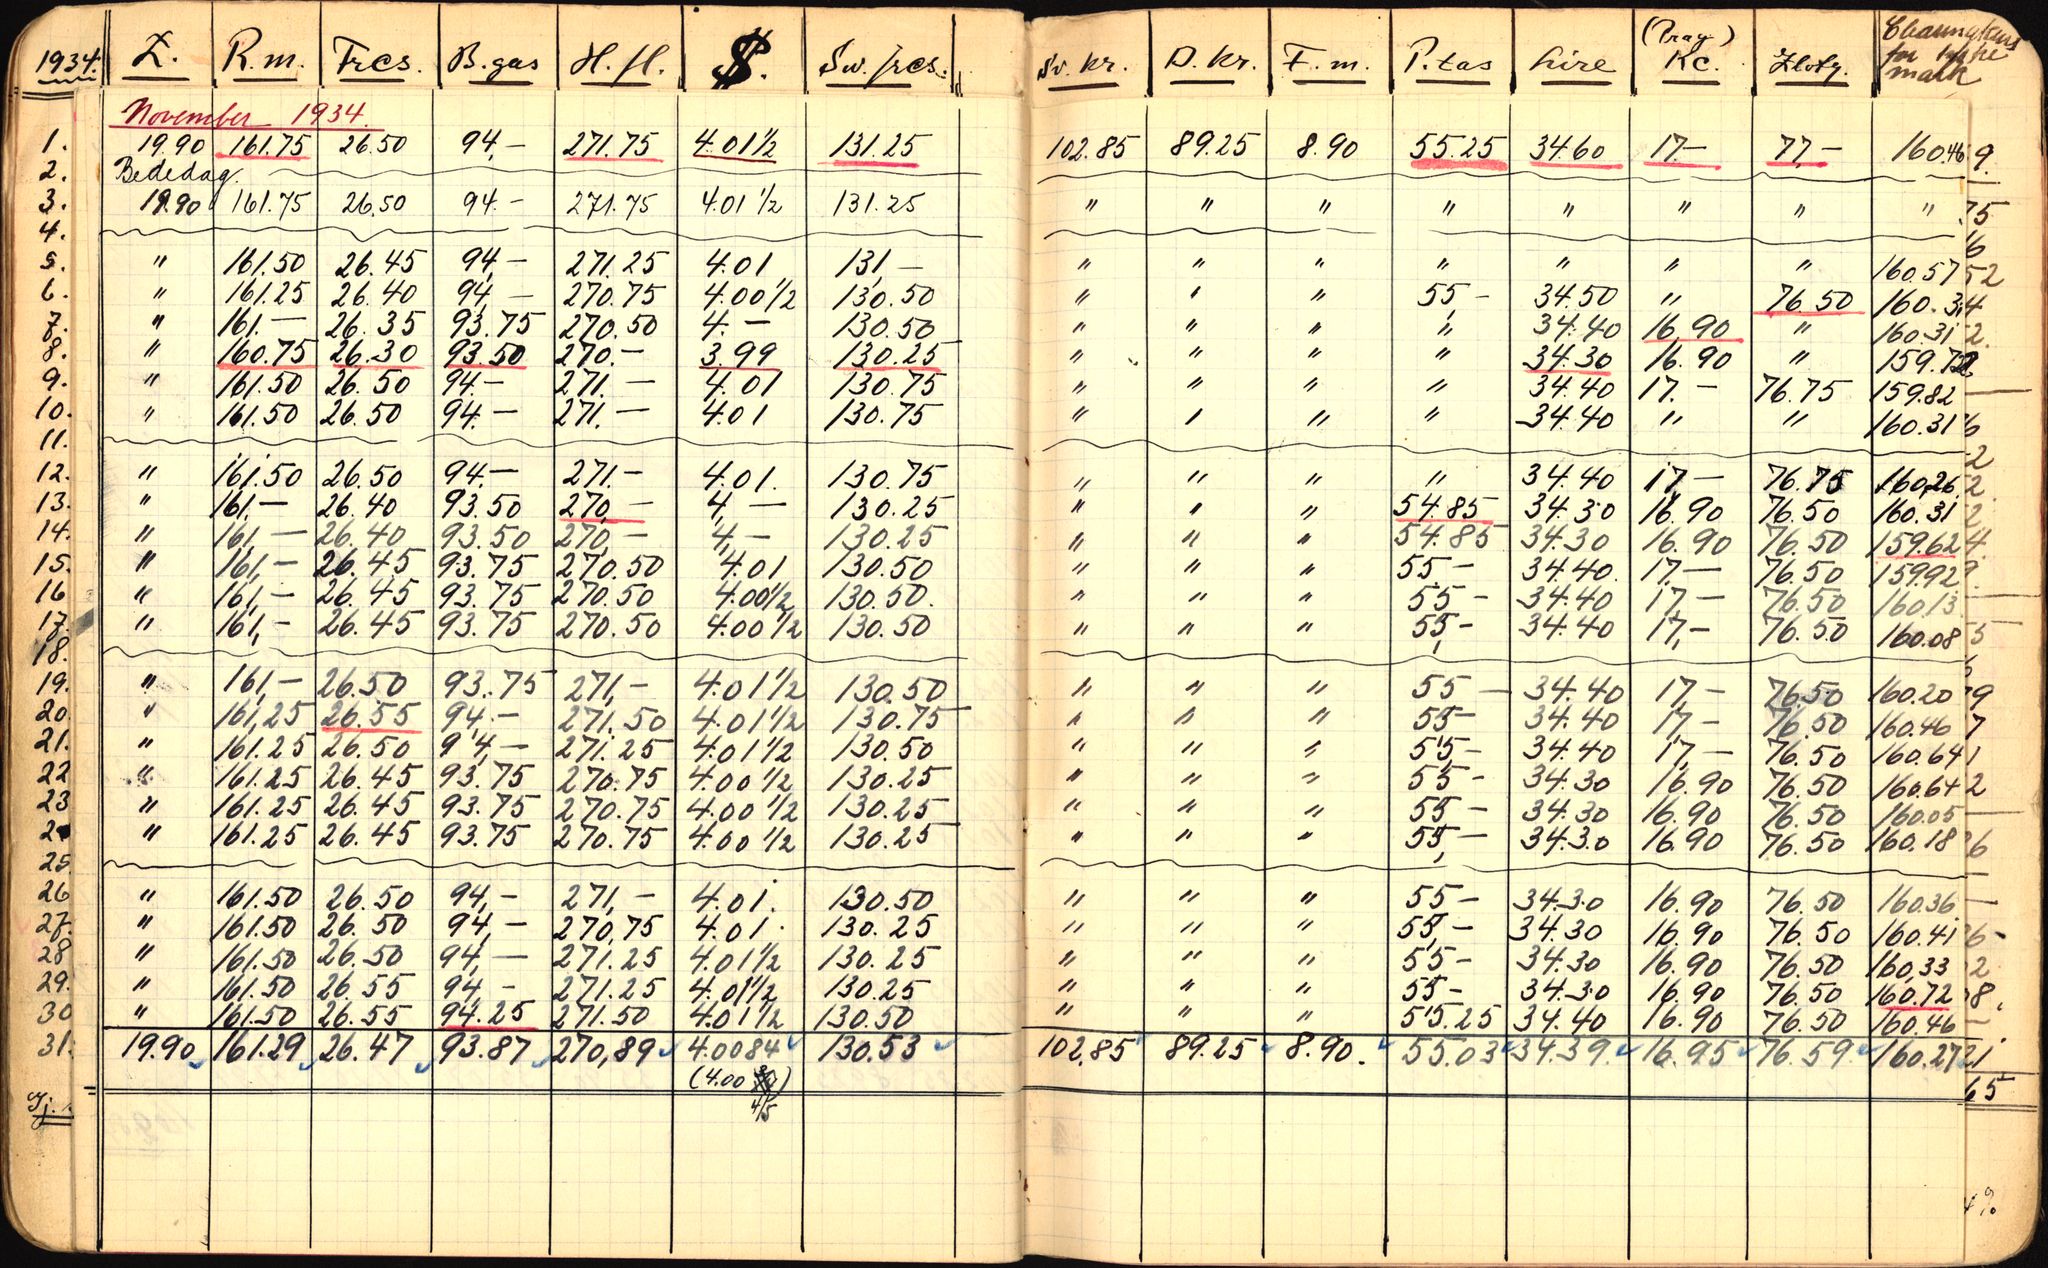 1934. £. R.m. Frcs. B.gas H.fl. $. Sw. frcs. Sv. kr. D. Kr. F.m. P.tas Lire (Prag) Kc. Zloty. for mark
November 1934.
1. 19.90 161.75 26.50 94,- 271.75 4.01 1/2 131.25 102.85 89.25 8.90 55.25 34.60 17.- 77.- 160.46
2. Bededag.
3. 19.90 161.75 26.50 94.- 271.75 4.01 1/2 131.25 " " " " " " " "
4.
5. " 161.50 26.45 94,- 271.25 4.01 131,- " " " " " " " 160.57
6. " 161.25 26.40 94,- 270.75 4.00 1/2 130.50 " " " 55,- 34.50 " 76.50 160.34
7. " 161.- 26.35 93.75 270.50 4.- 130.50 " " " " 34.40 16.90 " 160.31
8. " 160.75 26.30 93.50 270.- 3.99 130.25 " " " " 34.30 16.90 " 159.72
9. " 161.50 26.50 94.- 271.- 4.01 130.75 " " " " 34.40 17.- 76.75 159.82
10. " 161.50 26.50 94.- 271.- 4.01 130.75 " " " " 34.40 " " 160.31
11.
12. " 161.50 26.50 94.- 271.- 4.01. 130.75 " " " " 34.40 17,- 76.75 160,26
13. " 161,- 26.40 93.50 270,- 4,- 130.25 " " " 54.85 34.30 16.90 76.50 160.31
14. " 161,- 26.40 93.50 270,- 4,- 130.25 " " " 54.85 34.30 16.90 76.50 159.62
15. " 161,- 26.45 93.75 270.50 4.01 130.50 " " " 55,- 34.40. 17,- 76.50 159.92
16 " 161,- 26.45 93.75 270.50 4.00 1/2 130.50. " " " 55,- 34.40 17,- 76.50 160.13
17. " 161,- 26.45 93.75 270.50 4.00 1/2 130.50 " " " 55,- 34.40 17,- 76.50 160.08
18.
19. " 161,- 26.50 93.75 271,- 4.01 1/2 130.50 " " " 55- 34.40 17,- 76.50 160.20
20. " 161,25 26.55 94,- 271.50 4.01 1/2 130.75 " " " 55- 34.40 17,- 76.50 160.46
21. " 161.25 26.50 94,- 271.25 4.01 1/2 130.50 " " " 55,- 34.40 17,- 76.50 160.64
22 " 161.25 26.45 93.75 270.75 4.00 1/2 130.25 " " " 55- 34.30 16.90 76.50 160.64
23 " 161.25 26.45 93.75 270.75 4.00 1/2 130.25 " " " 55- 34.30 16.90 76.50 160.05
2 " 161.25 26.45 93.75 270.75 4.00 1/2 130.25 " " " 55,- 34.30 16.90 76.50 160.18
25.
26 " 161.50 26.50 94,- 271,- 4.01. 130.50 " " " 55- 34.30 16.90 76.50 160.36
27. " 161.50 26.50 94,- 270,75 4.01. 130.25 " " " 55,- 34.30 16.90 76.50 160.41
28 " 161.50 26.50 94,- 271.25 4.01 1/2 130.25 " " " 55- 34.30 16.90 76.50 160,33
29. " 161.50 26.55 94,- 271.25 4.01 1/2 130.25 " " " 55- 34.30 16.90 76.50 160.72
30 " 161.50 26.55 94.25 271.50 4.01 1/2 130.50 " " " 55.25 34.40 16.90 76.50 160.46
31. 19.90 161.29 26.47 93.87 270,89 4.0084 130.53 102,85 89.25 8.90. 55.03 34.39. 16.95 76.59 160.27
(4.00 )
4/5